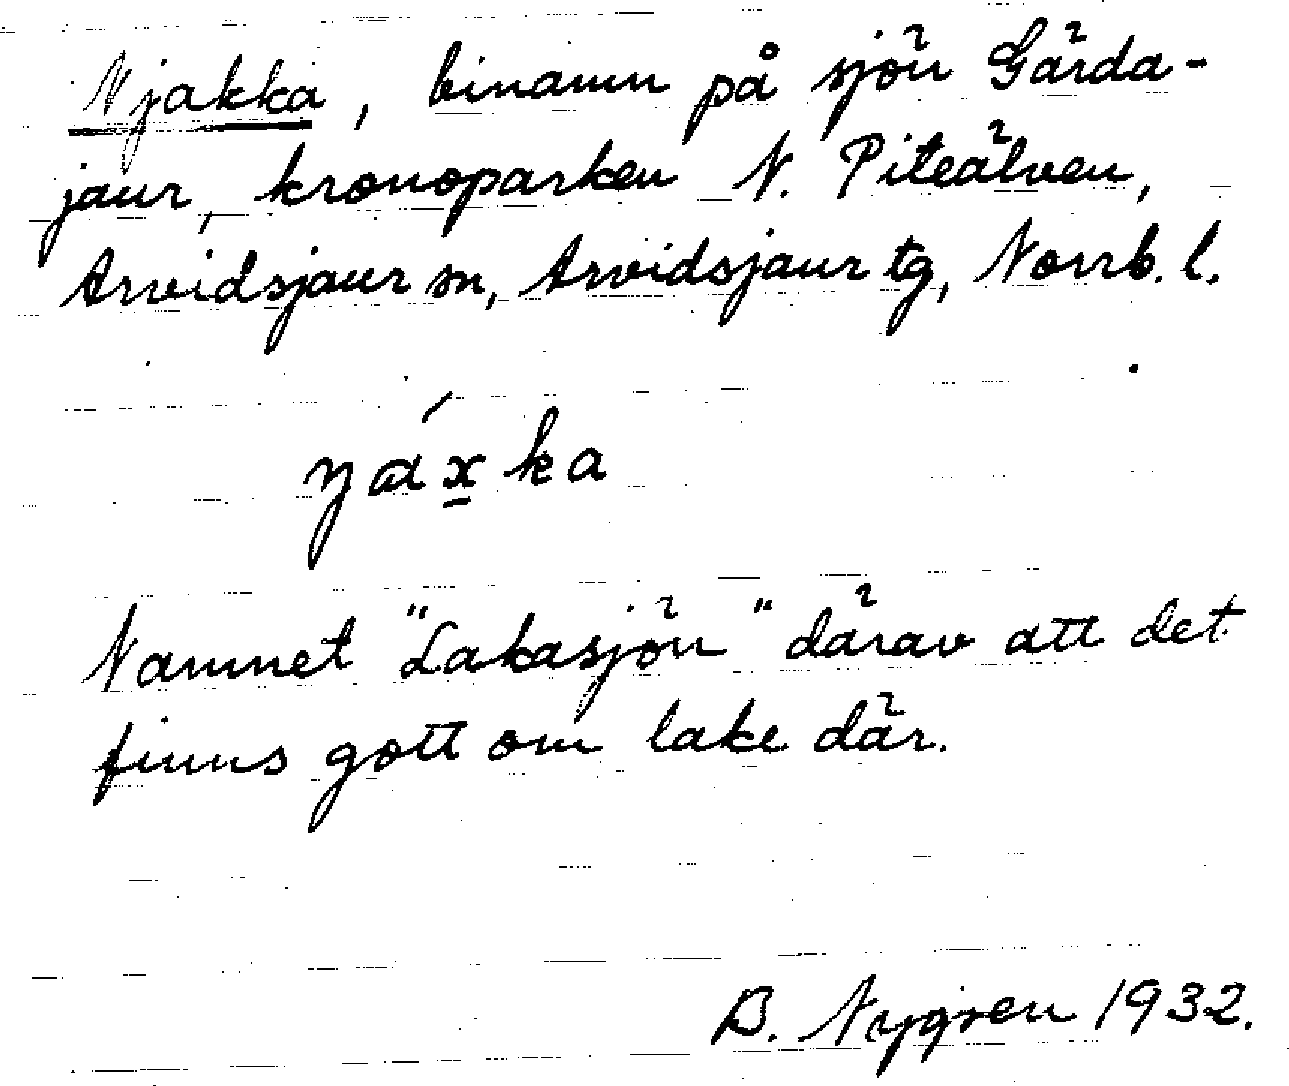 Njakka, binamn på sjön Gärda-
jaur, kronoparken N. Piteälven,
Arvidsjaur sn, Arvidsjaur tg, Norrb. l.
ŋáx̱ka
Namnet "Lakasjön" därav att det
finns gott om lake där.
B. Nygren 1932.